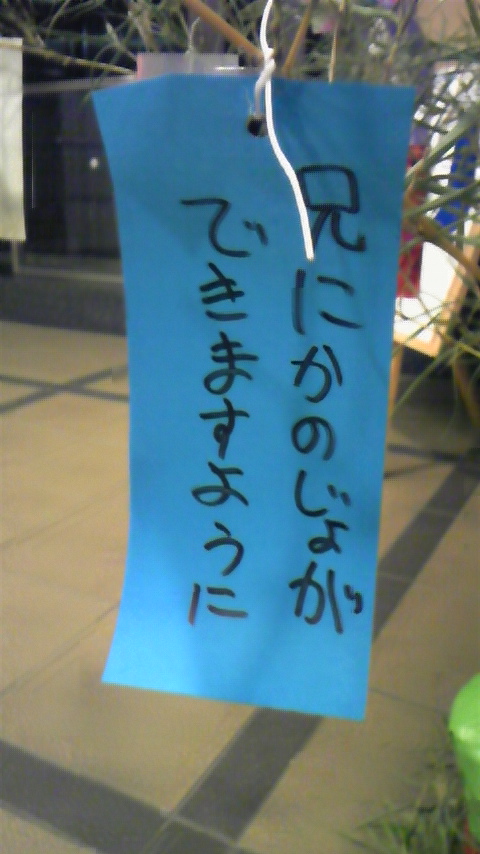 兄にかのじょが
できますように